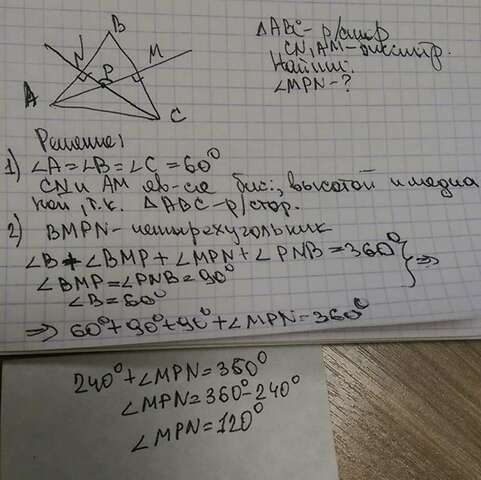 B
N
M
P
A
C
ΔABC - р/стор
CN, AM - биссектр.
Найти:
∠MPN - ?
Решение:
1) ∠A = ∠B = ∠C = 60°
CN и AM яв-ся бис., высотой и медиа
ной, т.к. ΔABC - р/стор.
2) BMPN - четырехугольник
∠B + ∠BMP + ∠MPN + ∠PNB = 360°
∠BMP = ∠PNB = 90°
∠B = 60°
⇒
⇒ 60° + 90° + 90° + ∠MPN = 360°
240° + ∠MPN = 360°
∠MPN = 360° - 240°
∠MPN = 120°